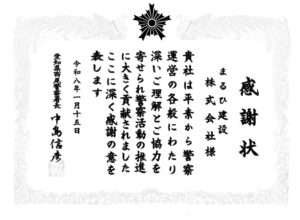 感謝状
まるひ建設
株式会社様
貴社は平素から警察
運営の各般にわたり
深いご理解とご協力を
寄せられ警察活動の推進
に大きく貢献されました
ここに深く感謝の意を
表します
令和八年一月十五日
愛知県西尾警察署長
中島信彦